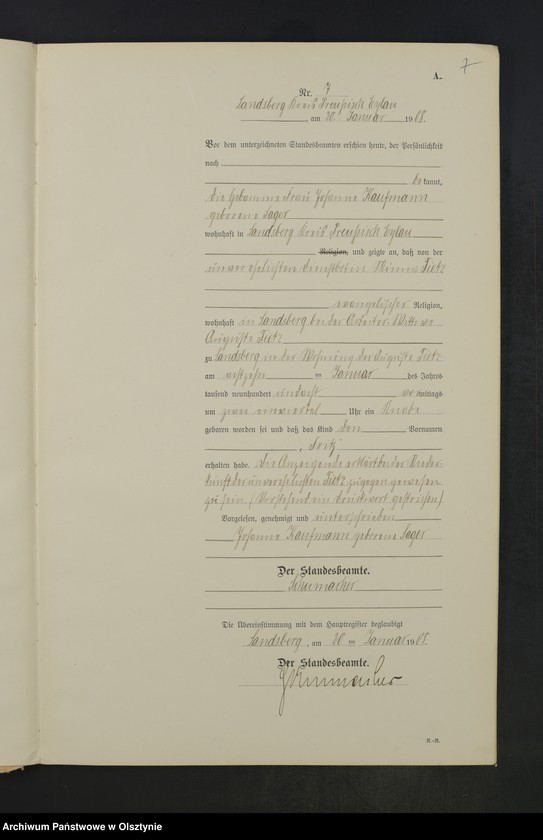 7
A.
Nr. 7
Landsberg Kreis Preußisch Eylau
am 20. Januar 1908.
Vor dem unterzeichneten Standesbeamten erschien heute, der Persönlichkeit
nach
bekannt,
die Hebamme Frau Johanne Kaufmann
geborene Sager
wohnhaft in Landsberg Kreis Preußisch Eylau
Religion, und zeigte an, daß von der
unverehelichten Dienstboten Minna Tietz
evangelischer Religion,
wohnhaft in Landsberg bei der Arbeiter-Witwe
Auguste Tietz
zu Landsberg in der Wohnung der Auguste Tietz
am achtzehn ten Januar des Jahres
tausend neunhundert und acht vormittags
um zwei einviertel Uhr ein Knabe
geboren worden sei und daß das Kind den Vornamen
, Fritz
erhalten habe. Die Anzeigende erklärt bei der Nieder
kunft der unverehelichten Tietz zugegen gewesen
zu sein. (Vorstehend ein Druckwort gestrichen)
Vorgelesen, genehmigt und unterschrieben
Johanne Kaufmann geborene Sager
Der Standesbeamte.
Schumacher
Die Übereinstimmung mit dem Hauptregister beglaubigt
Landsberg, am 20 ten Januar 1908.
Der Standesbeamte.
Schumacher
K.-R.
Archiwum Państwowe w Olsztynie